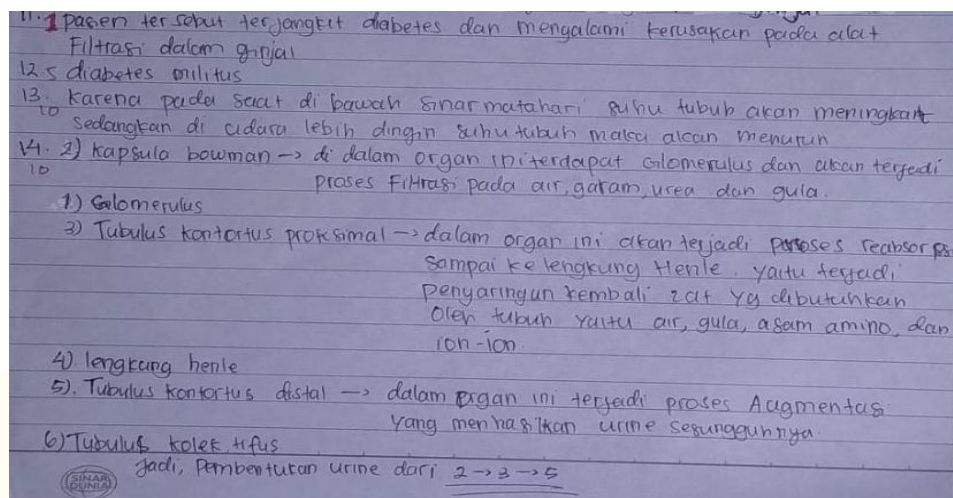 11. 1 pasien tersebut terjangkit diabetes dan mengalami kerusakan pada alat
Filtrasi dalam ginjal
12. 5 diabetes militus
13. Karena pada saat di bawah sinar matahari suhu tubuh akan meningkat
10 sedangkan di udara lebih dingin suhu tubuh maka akan menurun
14. 2) kapsula bowman -> di dalam organ ini terdapat Glomerulus dan akan terjadi
10 proses Filtrasi pada air, garam, urea dan gula.
1) Glomerulus
3) Tubulus kontortus proksimal -> dalam organ ini akan terjadi proses reabsorpsi
sampai ke lengkung Henle. yaitu terjadi
penyaringan kembali zat yg dibutuhkan
oleh tubuh yaitu air, gula, asam amino, dan
ion-ion.
4) lengkung henle
5). Tubulus kontortus distal -> dalam organ ini terjadi proses Augmentasi
yang menhasilkan urine sesungguhnya.
6) Tubulus kolektifus
Jadi, Pembentukan urine dari 2 -> 3 -> 5
SINAR DUNIA